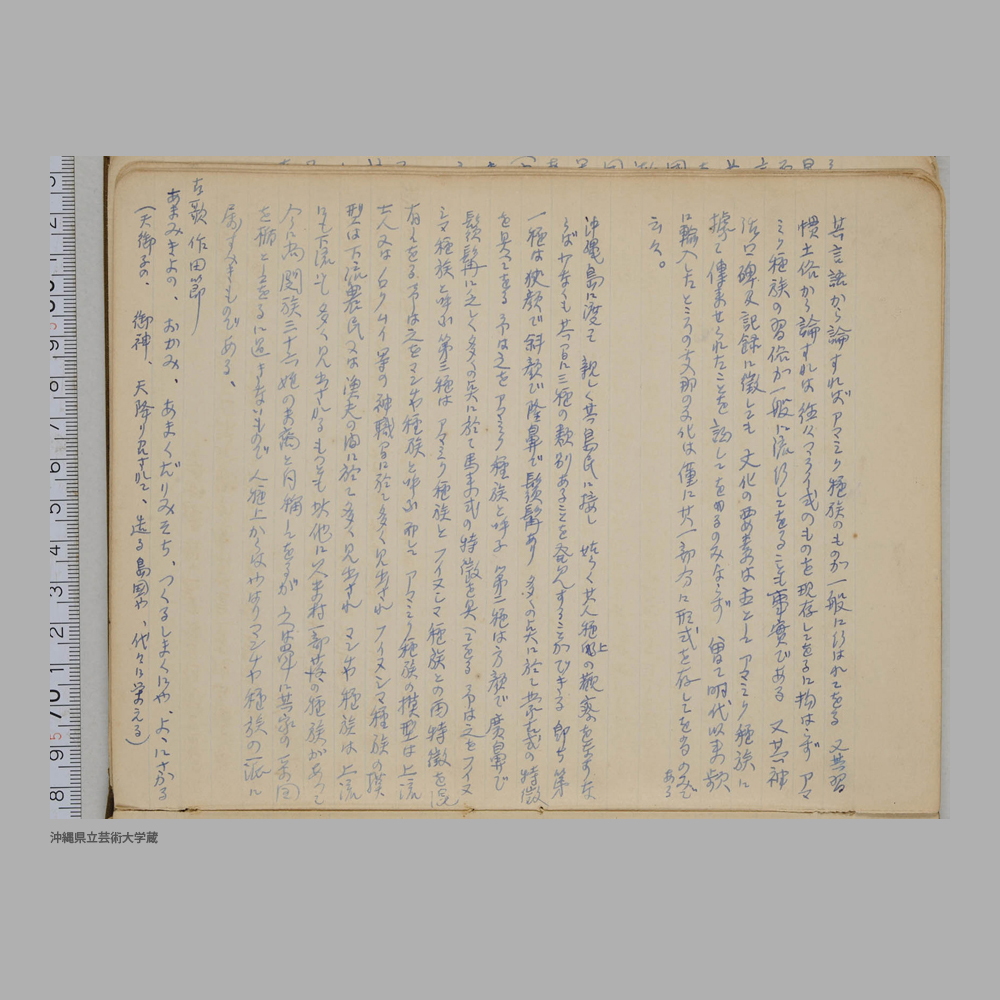 其言語から論すればアマミク種族のものが一般に行はれてをる 又其習
慣土俗から論すれは 往々マライ式のものを現存してをるに拘はらず アマ
ミク種族の習俗が一般に流行してをることも事實である 又其神
話口碑及記録に徴しても 文化の要素は主としてアマミク種族に
據て傳來せられたことを認してをるのみならず 曽て明代以来歟
に輸入したところの支那の文化は僅に其一部分に形式を存してをるのみで
ある
云々。
沖縄島に渡て 親しく其島民に接し 能く其人種上の観察をなすな
らば少なくも其間に三種の類別あることを発見することができる 即ち第
一種は狭顔で斜顔で隆鼻で鬚髯あり 多くの点に於て 式の特徴
を具へてをる 予は之をアマミク種族と呼ぶ 第二種は方顔で廣鼻で
鬚髯に乏しく多くの点に於て馬来式の特徴を具へてをる 予は之をフイヌ
シマ種族と呼ぶ 第三種は アマミク種族とフイヌシマ種族との両特徴を
有てをる予は之をマンチャ種族と呼ぶ 而して アマミク種族の模型は上流
士人又は ノロクムイ等の神職間に於て多く見出され フイヌシマ種族の模
型は下流農民又は漁夫の間に於て多く見出され マンチャ種族は上流
にも下流にも多く見出さるるものも 其他に久米村一部落の種族があつて
今に尚閩族三十六姓の末裔と自稱してをるが
を 過ぎないもので 人種上からはやはりマンチャ種族の一派に
属すべきものである、
古歌 作田節
あまみきよの、おかみ、あまくだりみそち、つくるしまくにや、よゝにさかる
(天御子の、御神、天降り召されて、造る島国や、代々に栄える)
8 9 10 1 2 3 4 5 6 7 8 9
沖縄県立芸術大学蔵